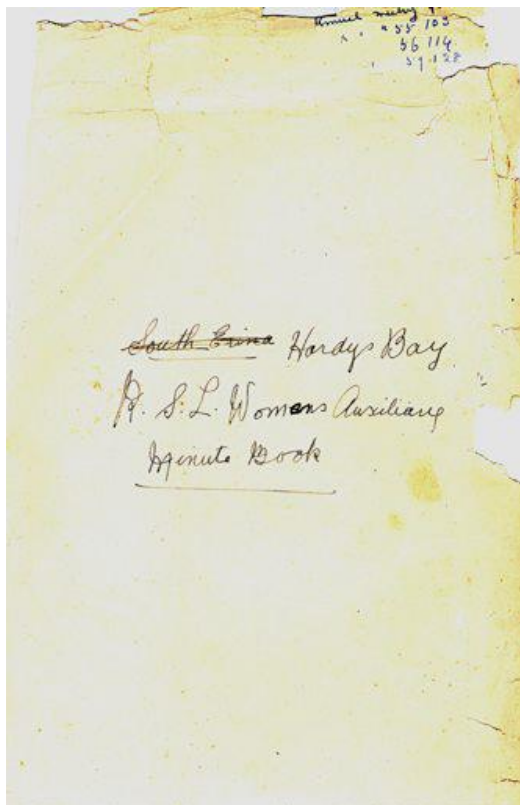 Annual meeting
" " " 55 103
56 114
" 57 128
South Erina Hardys Bay
R. S. L. Womens Auxiliary
Minute Book